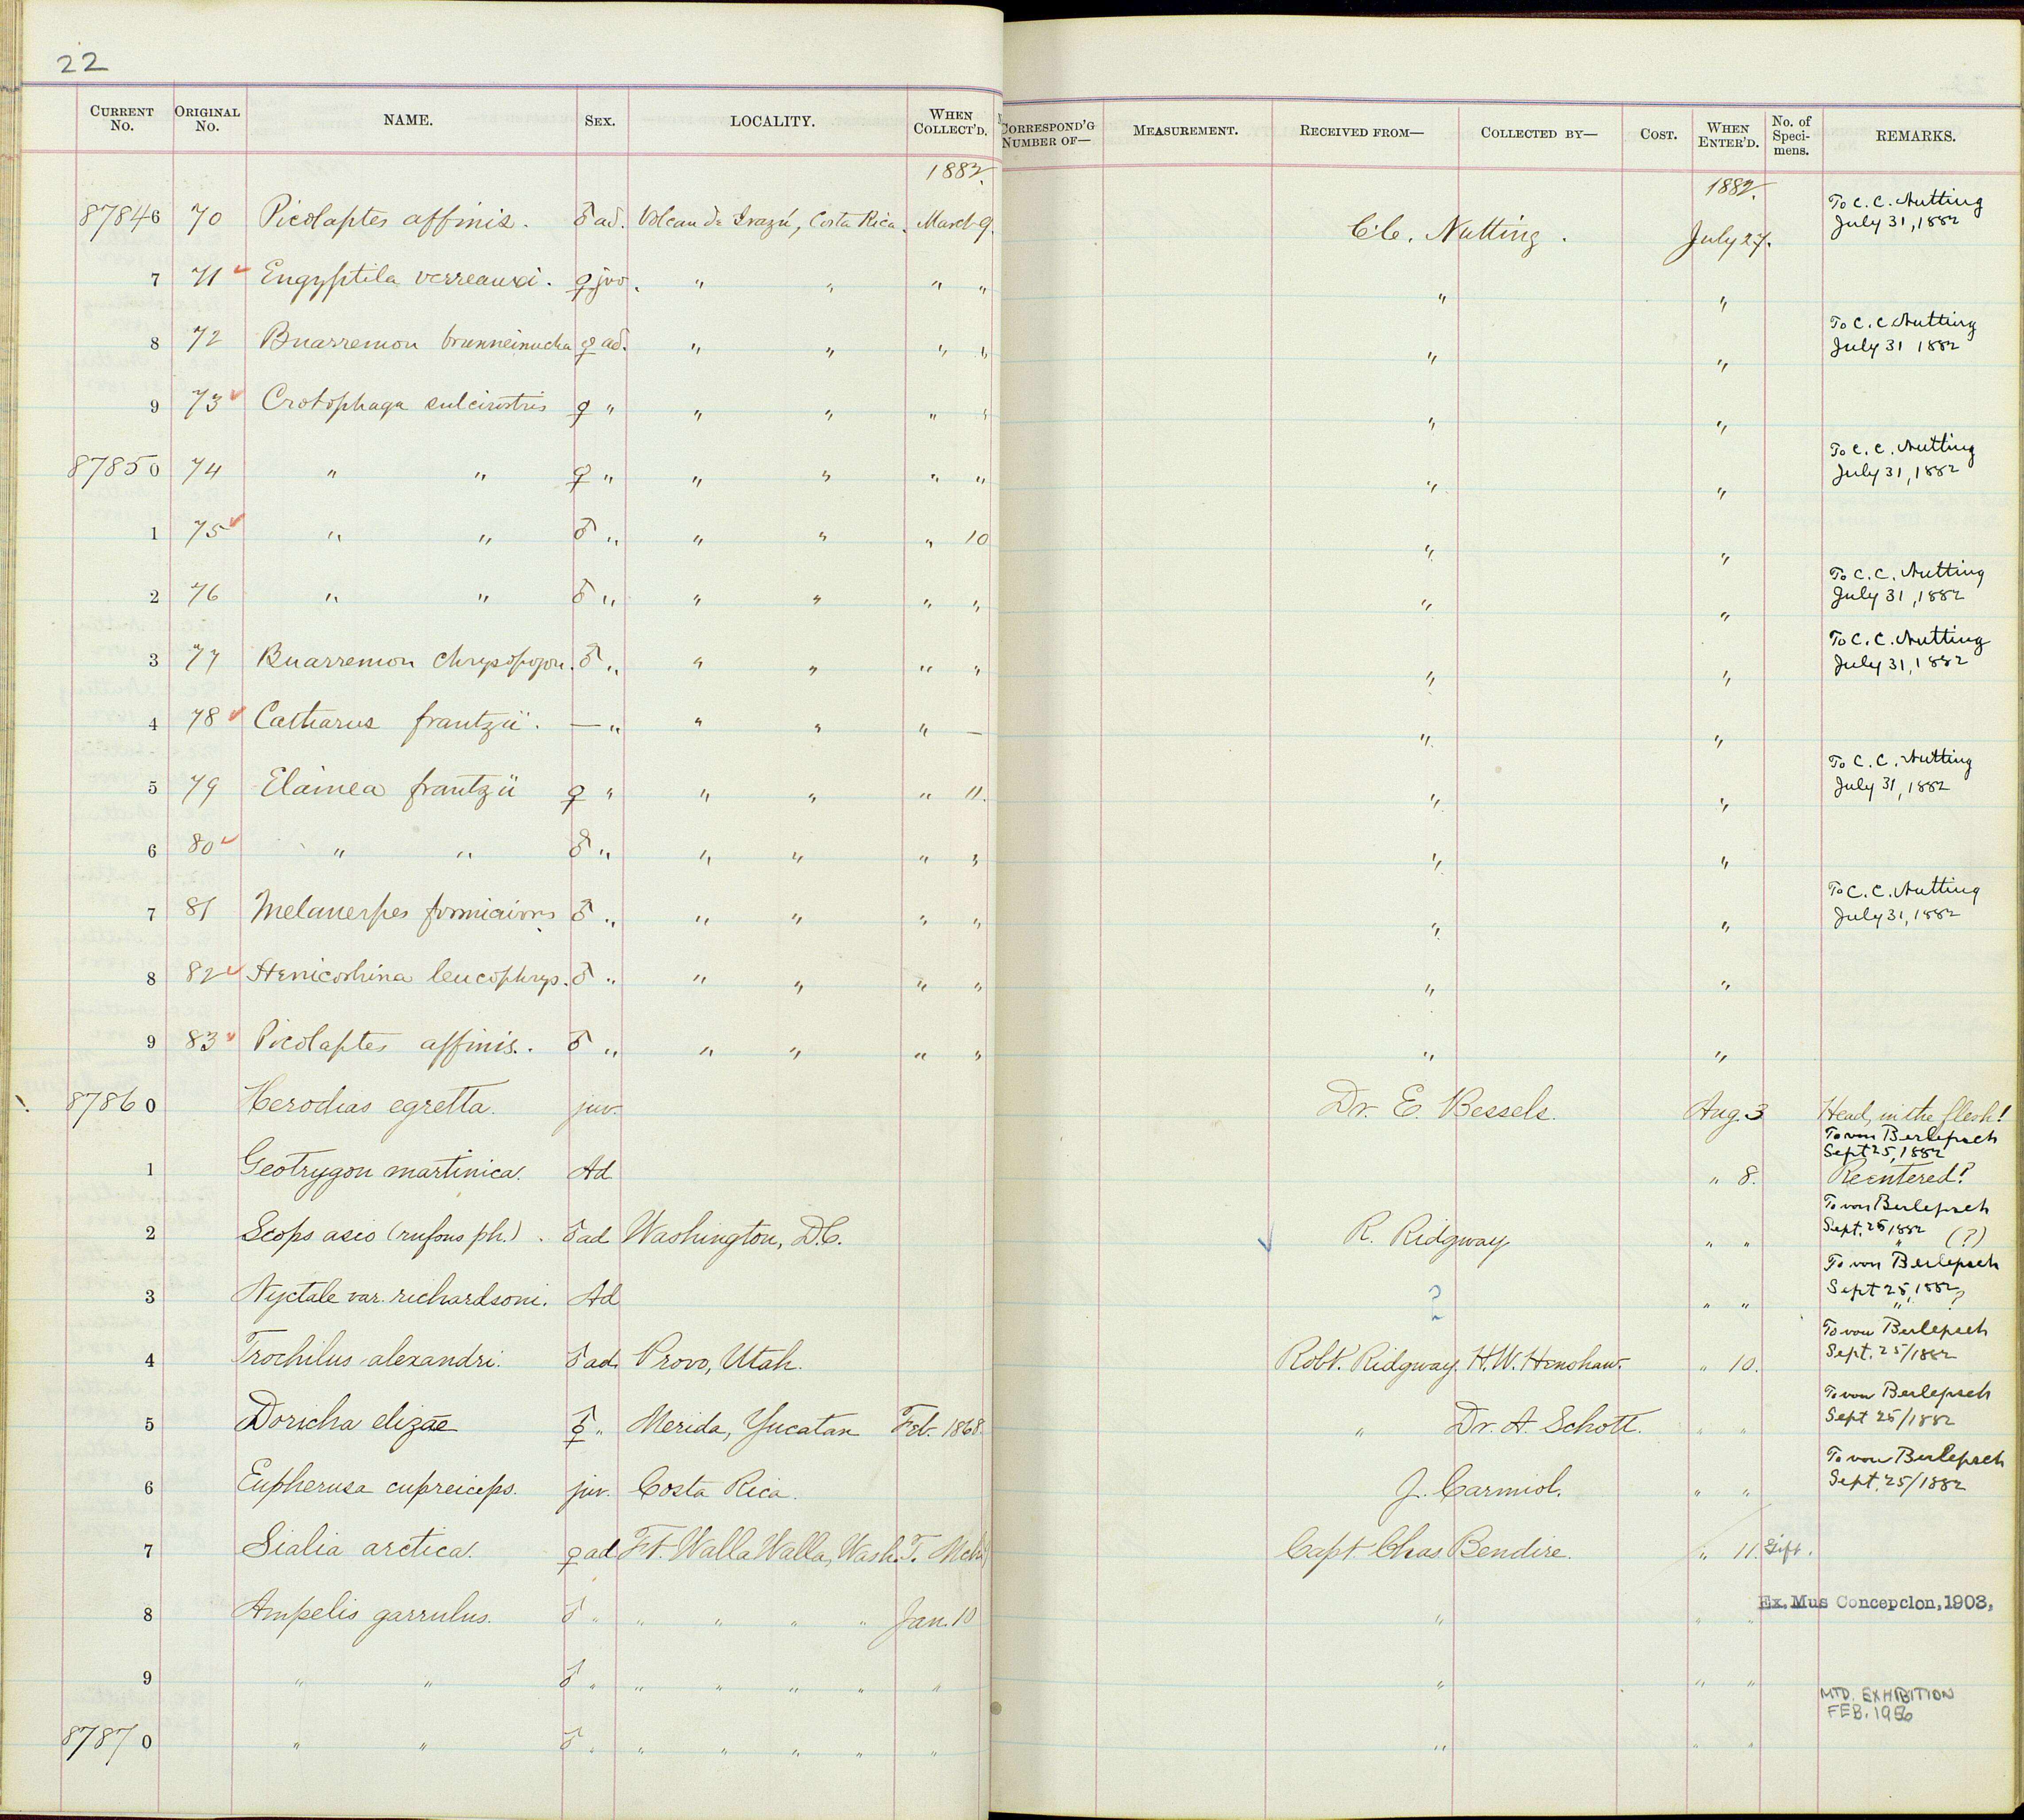 22
CURRENT No. ORIGINAL No. NAME. SEX. LOCALITY. WHEN COLLECT'D. CORRESPOND'G NUMBER OF— MEASUREMENT. RECEIVED FROM— COLLECTED BY— COST. WHEN ENTER'D. No. of Speci-mens. REMARKS.
1882. 1882.
87846 70 Picolaptes affinis. ♂ ad. Volcan de Irazú, Costa Rica. March 9. C.C. Nutting. July 27. To C. C. Nutting July 31, 1882
7 71 ✓ Engyptila verreauxi. ♀ juv. " " " " " "
8 72 Buarremon brunneinucha ♀ ad. " " " " " " To C. C. Nutting July 31 1882
9 73 ✓ Crotophaga sulcirostris ♀ " " " " " " "
87850 74 " " ♀ " " " " " " " To C. C. Nutting July 31, 1882
1 75 ✓ " " ♂ " " " " 10 " "
2 76 " " ♂ " " " " " " " To C. C. Nutting July 31, 1882
3 77 Buarremon chrysopogon. ♂ " " " " " " " To C. C. Nutting July 31, 1882
4 78 ✓ Catharus frantzii. — " " " " — " "
5 79 Elainea frantzii ♀ " " " " 11. " " To C. C. Nutting July 31, 1882
6 80 ✓ " " ♂ " " " " " " "
7 81 Melanerpes formicivorus ♂ " " " " " " " To C. C. Nutting July 31, 1882
8 82 ✓ Henicorhina leucophrys. ♂ " " " " " " "
9 83 ✓ Picolaptes affinis. ♂ " " " " " " "
87860 Herodias egretta. juv. Dr. E. Bessels. Aug. 3 Head, in the flesh!
1 Geotrygon martinica. Ad " 8. To von Berlepsch Sept 25, 1882 Reentered?
2 Scops asio (rufous ph.). ♂ ad Washington, D.C. ✓ R. Ridgway " " To von Berlepsch Sept. 25 1882 " (?)
3 Nyctale var. richardsoni. Ad ? " " To von Berlepsch Sept 25, 1882 " ?
4 Trochilus alexandri. ♂ ad. Provo, Utah. Robt. Ridgway H. W. Henshaw. " 10. To von Berlepsch Sept. 25/1882
5 Doricha elizae " Merida, Yucatan Feb. 1868. " Dr. A. Schott. " " To von Berlepsch Sept 25/1882
6 Eupherusa cupreiceps. juv. Costa Rica. J. Carmiol. " " To von Berlepsch Sept. 25/1882
7 Sialia arctica. ♀ ad Ft. Walla Walla, Wash. T. Mch Capt. Chas. Bendire. " 11. Gift.
8 Ampelis garrulus. ♂ " " " " " Jan. 10 " " " Ex. Mus Concepcion, 1903,
9 " " ♂ " " " " " " " " " MTD. EXHIBITION FEB. 1956
87870 " " ♂ " " " " " " " " "